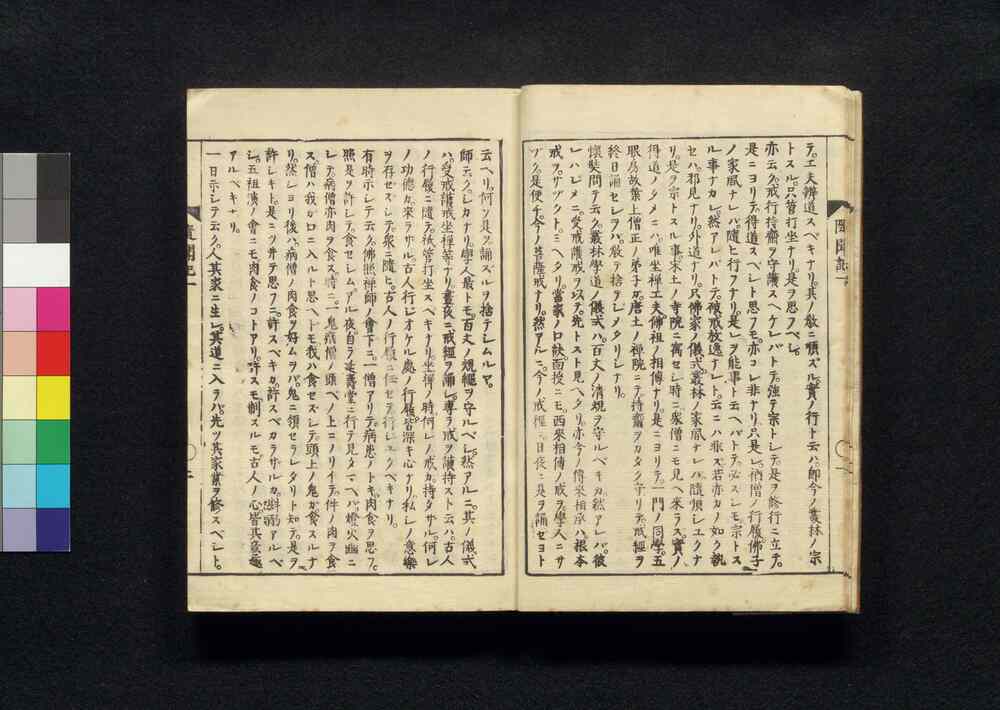 隨聞記一
テ。工夫辨道スベキナリ。其ノ敎ニ順ズル。實ノ行ト云ハ。卽今ノ叢林ノ宗
トスル。只管打坐ナリ。是ヲ思フベシ。
亦云ク。戒行持齋ヲ守護スベケレバトテ。强テ宗トシテ。是ヲ修行ニ立テ。
是ニヨリテ。得道スベシト思フモ。亦コレ非ナリ。只是レ衲僧ノ行履。佛子
ノ家風ナレバ。隨ヒ行フナリ。是レヲ能事ト云ヘバトテ。必スシモ宗トス
ル事ナカレ。然アレバトテ。破戒放逸ナレト。云ニハ非ス。若亦カノ如ク執
セハ。邪見ナリ。外道ナリ。只佛家ノ儀式。叢林ノ家風ナレバ。隨順シユクナ
リ。是ヲ宗トスル事。宋土ノ寺院ニ寓セシ時ニ。衆僧ニモ見ヘ來ラス。實ノ
得道ノタメニハ。唯坐禪工夫。佛祖ノ相傳ナリ。是ニヨリテ。一門ノ同學。五
眼房故葉上僧正ノ弟子ガ。唐土ノ禪院ニテ。持齋ヲカタク守リテ。戒經ヲ
終日誦セシヲハ。敎テ捨テシメタリシナリ。
懷奘問テ云ク。叢林學道ノ儀式ハ。百丈ノ淸規ヲ守ルベキカ。然アレバ。彼
レハジメニ受戒護戒ヲ以テ。先トスト見ヘタリ。亦今ノ傳來相承ハ。根本
戒ヲ。サヅクト。ミヘタリ。當家ノ口訣面授ニモ。西來相傳ノ戒ヲ。學人ニサ
ヅク。是便チ。今ノ菩薩戒ナリ。然アルニ。今ノ戒經ニ。日夜ニ是ヲ誦セヨト
云ヘリ。何ソ是ヲ誦スルヲ捨テシムルヤ。
師云ク。シカナリ。學人最トモ。百丈ノ規繩ヲ守ルベシ。然アルニ。其ノ儀式
ハ。受戒護戒坐禪等ナリ。晝夜ニ戒經ヲ誦シ。專ラ戒ヲ護持スト云ハ。古人
ノ行履ニ隨テ。祗管打坐スベキナリ。坐禪ノ時。何レノ戒カ。持タサル。何レ
ノ功德カ。來ラサル。古人行シオケル處ノ行履。皆深キ心ナリ。私シノ意樂
ヲ存ゼズシテ。衆ニ隨ヒ。古人ノ行履ニ任セテ。行シユクベキナリ。
有時示シテ云ク。佛照禪師ノ會下ニ。一僧アリテ。病患ノトキ。肉食ヲ思フ。
照是ヲ許シテ。食セシム。アル夜自ラ延壽堂ニ行テ見タマヘバ。燈火幽ニ
シテ。病僧亦肉ヲ食ス。時ニ一鬼病僧ノ頭ベノ上ニノリイテ。件ノ肉ヲ食
ス。僧ハ我カ口ニ入ルト思ヘトモ。我ハ食セズシテ。頭上ノ鬼カ食スルナ
リ。然シヨリ後ハ。病僧ノ肉食ヲ好ムヲバ。鬼ニ領セラレタリト知テ。是ヲ
許シキト。是ニツヰテ思フニ。許スベキカ。許スベカラサルカ。斟酌アルベ
シ。五祖演ノ會ニモ。肉食ノコトアリ。許スモ制スルモ。古人ノ心。皆其意趣
アルベキナリ。
一日示シテ云ク。人其家ニ生レ。其道ニ入ラハ。先ツ其家業ヲ修スベシト。